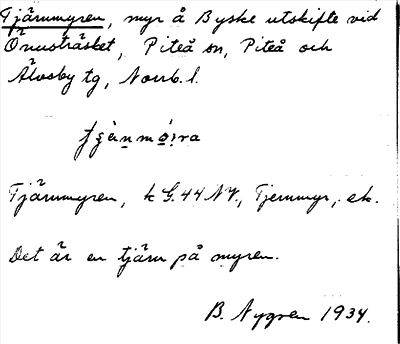 Tjärnmyren, myr å Byske utskifte vid
Önusträsket, Piteå sn, Piteå och
Älvsby tg, Norrb. l.
Tjärnmyren, k G.44 NV., Tjernmyr, ek.
Det är en tjärn på myren.
B. Nygren 1934.